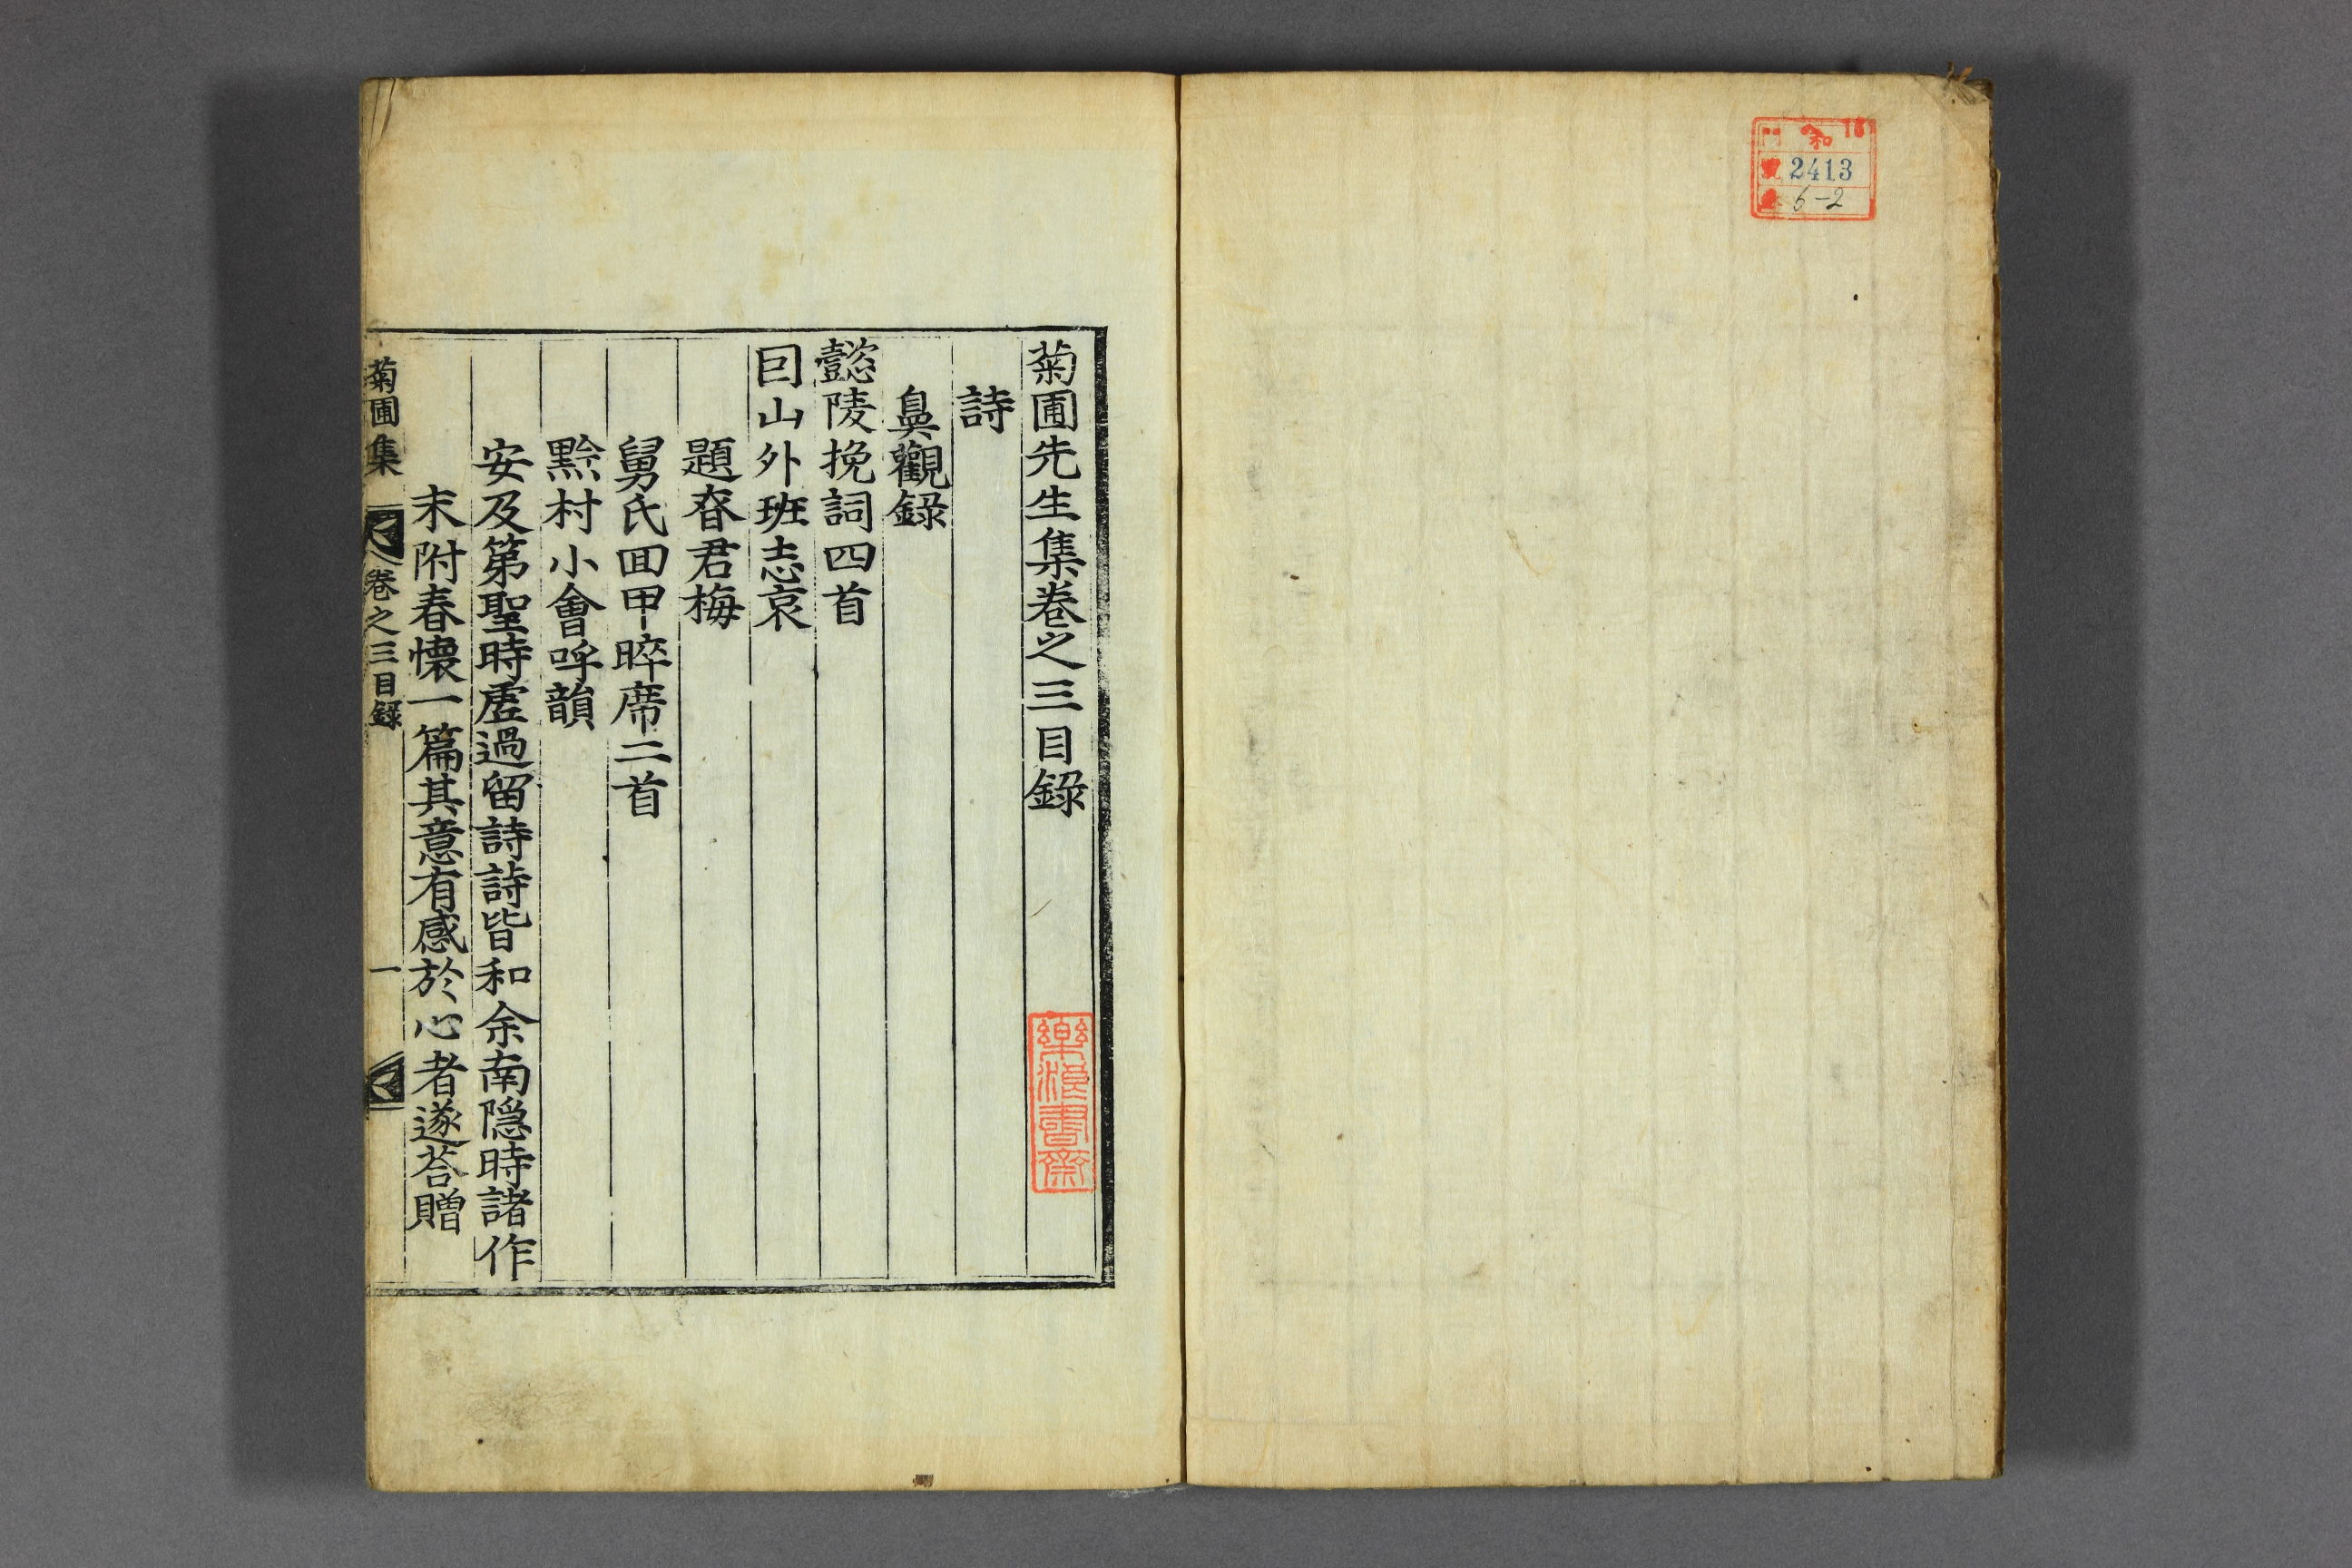 令和
2413
6-2
菊圃先生集卷之三目錄
詩
鼻觀錄
懿陵挽詞四首
囙山外班志哀
題㫪君梅
舅氏回甲晬席二首
黔村小會呼韻
安及第聖時虗過留詩詩皆和余南隱時諸作
末附春懷一篇其意有感於心者遂荅贈
菊圃集 卷之三目錄 一
樂浪書齋